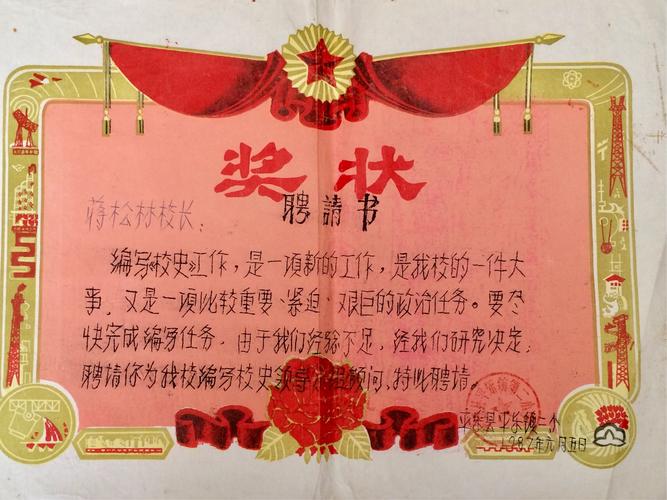 奖状
聘請书
蒋松林校长：
编写校史工作，是一項新的工作，是我校的一件大
事，又是一項比较重要、紧迫、艰巨的政治任务。要尽
快完成编写任务，由于我们经验不足，经我们研究决定：
聘請你为我校编写校史领导小组顾问，特此聘請。
平乐县平乐镇二小
1982年元月五日